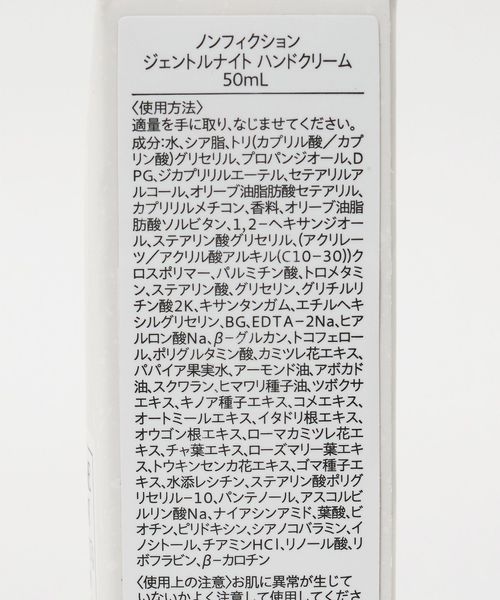 ノンフィクション
ジェントルナイト ハンドクリーム
50mL
〈使用方法〉
適量を手に取り、なじませてください。
成分:水、シア脂、トリ(カプリル酸/カプ
リン酸)グリセリル、プロパンジオール、D
PG、ジカプリリルエーテル、セテアリルア
ルコール、オリーブ油脂肪酸セテアリル、
カプリリルメチコン、香料、オリーブ油脂
肪酸ソルビタン、1,2-ヘキサンジオー
ル、ステアリン酸グリセリル、(アクリレー
ツ/アクリル酸アルキル(C10-30))ク
ロスポリマー、パルミチン酸、トロメタミ
ン、ステアリン酸、グリセリン、グリチルリ
チン酸2K、キサンタンガム、エチルヘキ
シルグリセリン、BG、EDTA-2Na、ヒア
ルロン酸Na、β-グルカン、トコフェロー
ル、ポリグルタミン酸、カミツレ花エキス、
パパイア果実水、アーモンド油、アボカド
油、スクワラン、ヒマワリ種子油、ツボクサ
エキス、キノア種子エキス、コメエキス、
オートミールエキス、イタドリ根エキス、
オウゴン根エキス、ローマカミツレ花エ
キス、チャ葉エキス、ローズマリー葉エキ
ス、トウキンセンカ花エキス、ゴマ種子エ
キス、水添レシチン、ステアリン酸ポリグ
リセリル-10、パンテノール、アスコルビ
ルリン酸Na、ナイアシンアミド、葉酸、ビ
オチン、ピリドキシン、シアノコバラミン、イ
ノシトール、チアミンHCl、リノール酸、リ
ボフラビン、β-カロチン
〈使用上の注意〉お肌に異常が生じて
いないかよく注意して使用してくださ